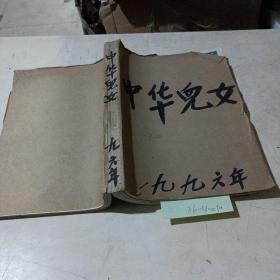 中华儿女
一九九六年
中华儿女
一九九六年